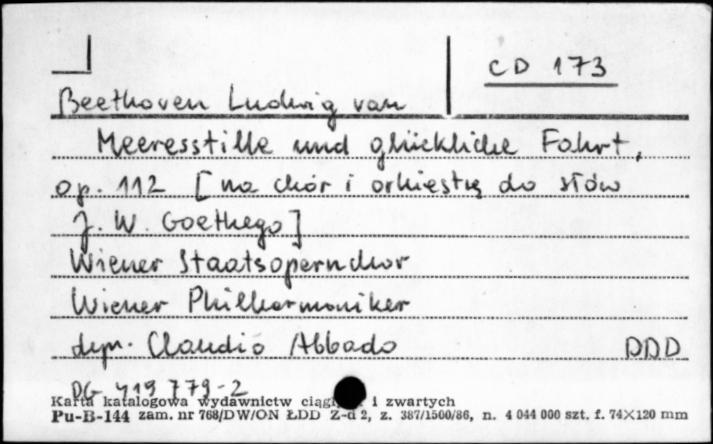 CD 173
Beethoven Ludwig van
Meeresstille und glückliche Fahrt,
op. 112 [na chór i orkiestrę do słów
J. W. Goethego]
Wiener Staatsopernchor
Wiener Philharmoniker
dyr. Claudio Abbado DDD
DG 419 779-2
Karta katalogowa wydawnictw i zwartych
Pu-B-144 zam. nr 768/DW/ON ŁDD Z-d 2, z. 387/1500/86, n. 4 044 000 szt. f. 74×120 mm